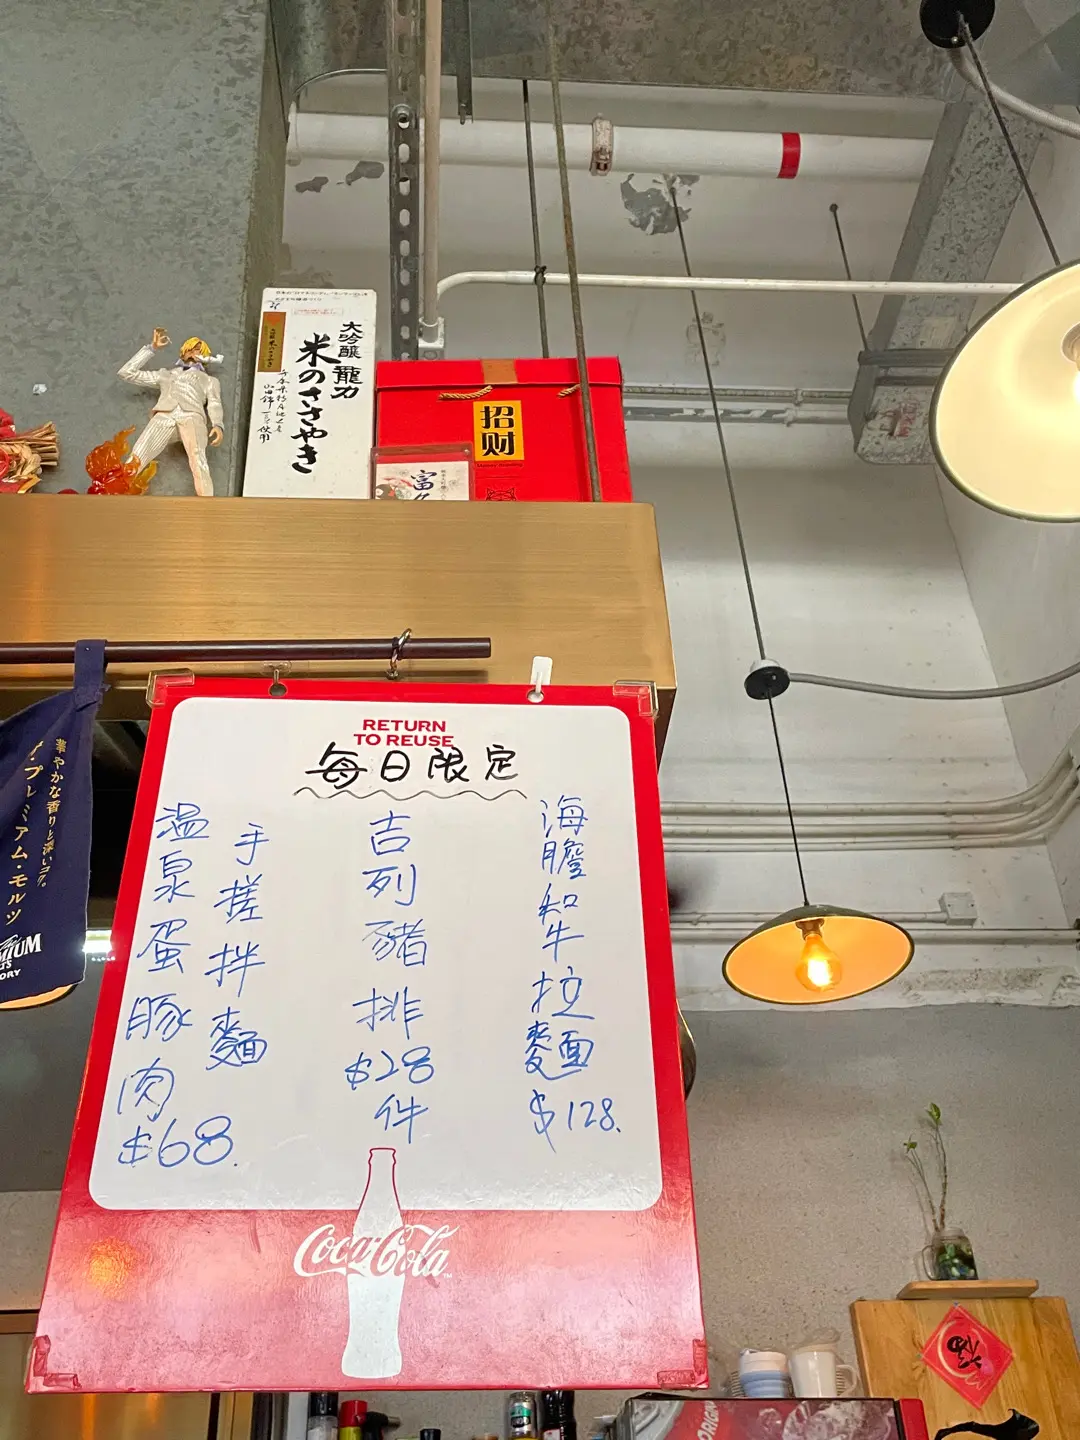 大吟醸 龍力
米のささやき
山田錦
使用
招
财
Money
富
RETURN
TO REUSE
每日限定
海膽和牛拉麵
$128.
吉列豬排
$28
件
手搓拌麵
温泉蛋豚肉
$68.
Coca-Cola
華やかな香りと深いコク。
ザ・プレミアム・モルツ
福
ORIGIN